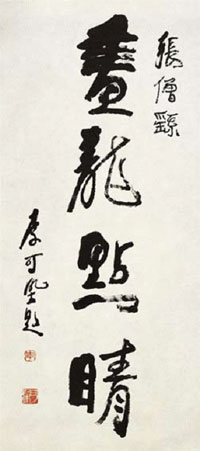 張僧繇
畫龍點睛
可 題